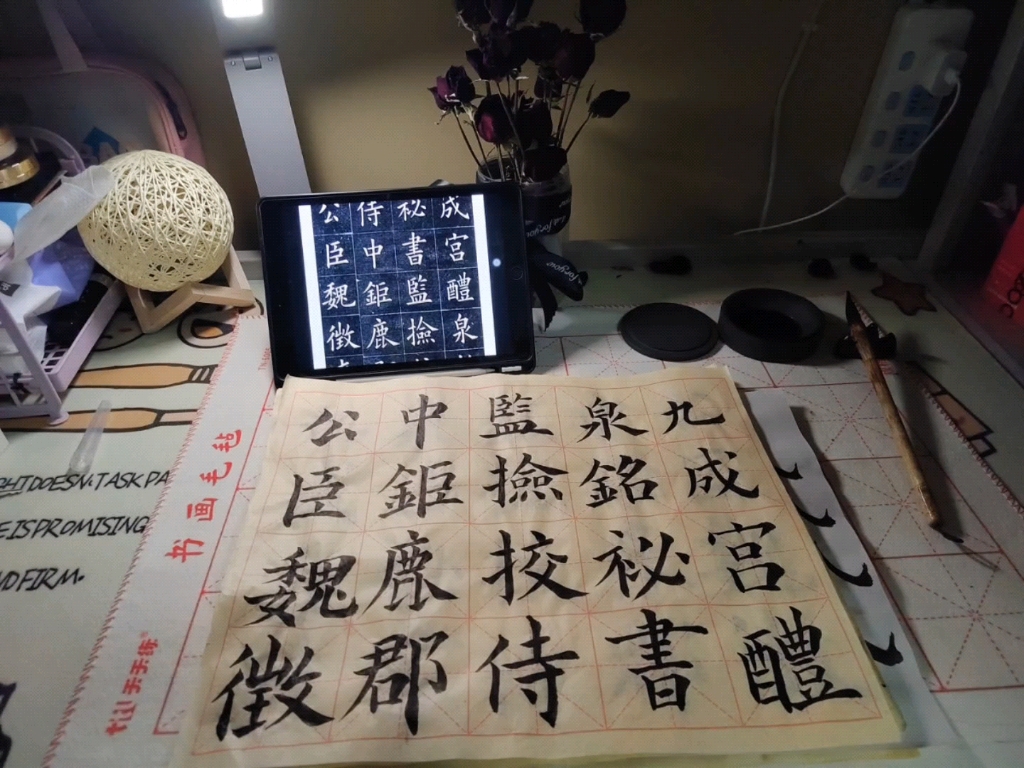 九成宮醴
泉銘祕書
監撿挍侍
中鉅鹿郡
公臣魏徵
成宮醴泉
祕書監撿
侍中鉅鹿
公臣魏徵
书画毛毡
DOESN.T ASK
IS PROMISING
FIRM.